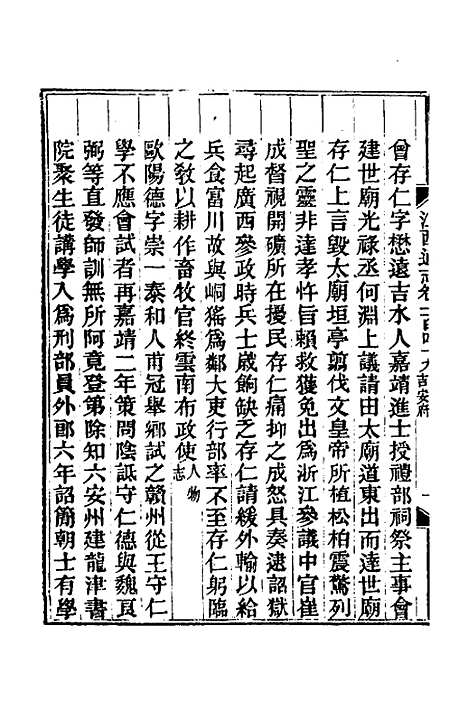 曾存仁字懋遠吉水人嘉靖進士授禮部祠祭主事會
建世廟光祿丞何淵上議請由太廟道東出而達世廟
存仁上言毀太廟垣亭翦伐文皇帝所植松柏震驚列
聖之靈非達孝忤旨賴救獲免出為浙江參議中官崔
成督視開礦所在擾民存仁痛抑之成怒具奏逮詔獄
尋起廣西參政時兵士歲餉缺乏存仁請緩外輸以給
兵食富川故與峒猺為鄰大吏行部率不至存仁躬臨
之敎以耕作畜牧官終雲南布政使人物志
歐陽德字崇一泰和人甫冠舉鄉試之贛州從王守仁
學不應會試者再嘉靖二年策問陰詆守仁德與魏良
弼等直發師訓無所阿竟登第除知六安州建龍津書
院聚生徒講學入為刑部員外郎六年詔簡朝士有學
江西通志卷一百四十九吉安府
一